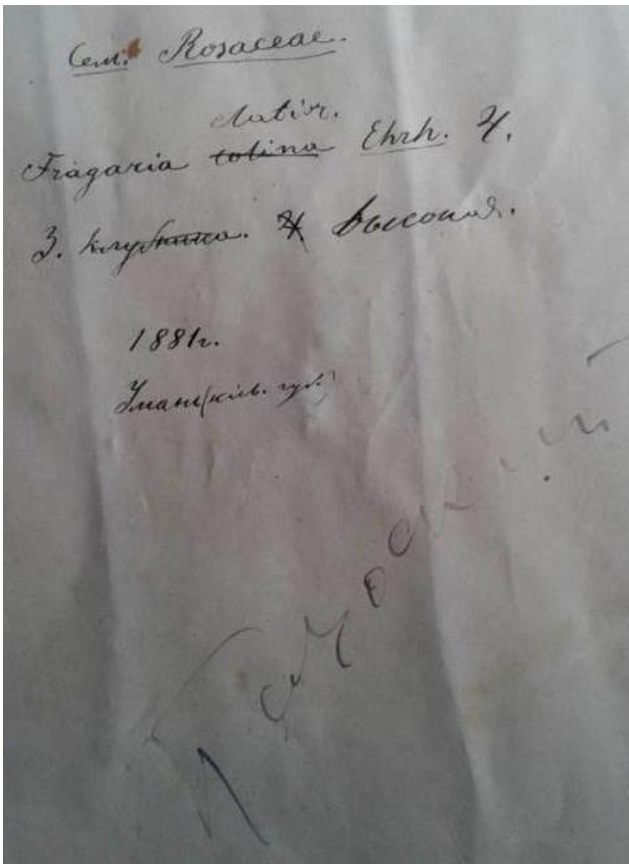 Сем. Rosaceae.
elatior.
Fragaria colina Ehrh. ♃.
З. клубника. ♃ высокая.
1881г.
Умань (кіев. губ.)